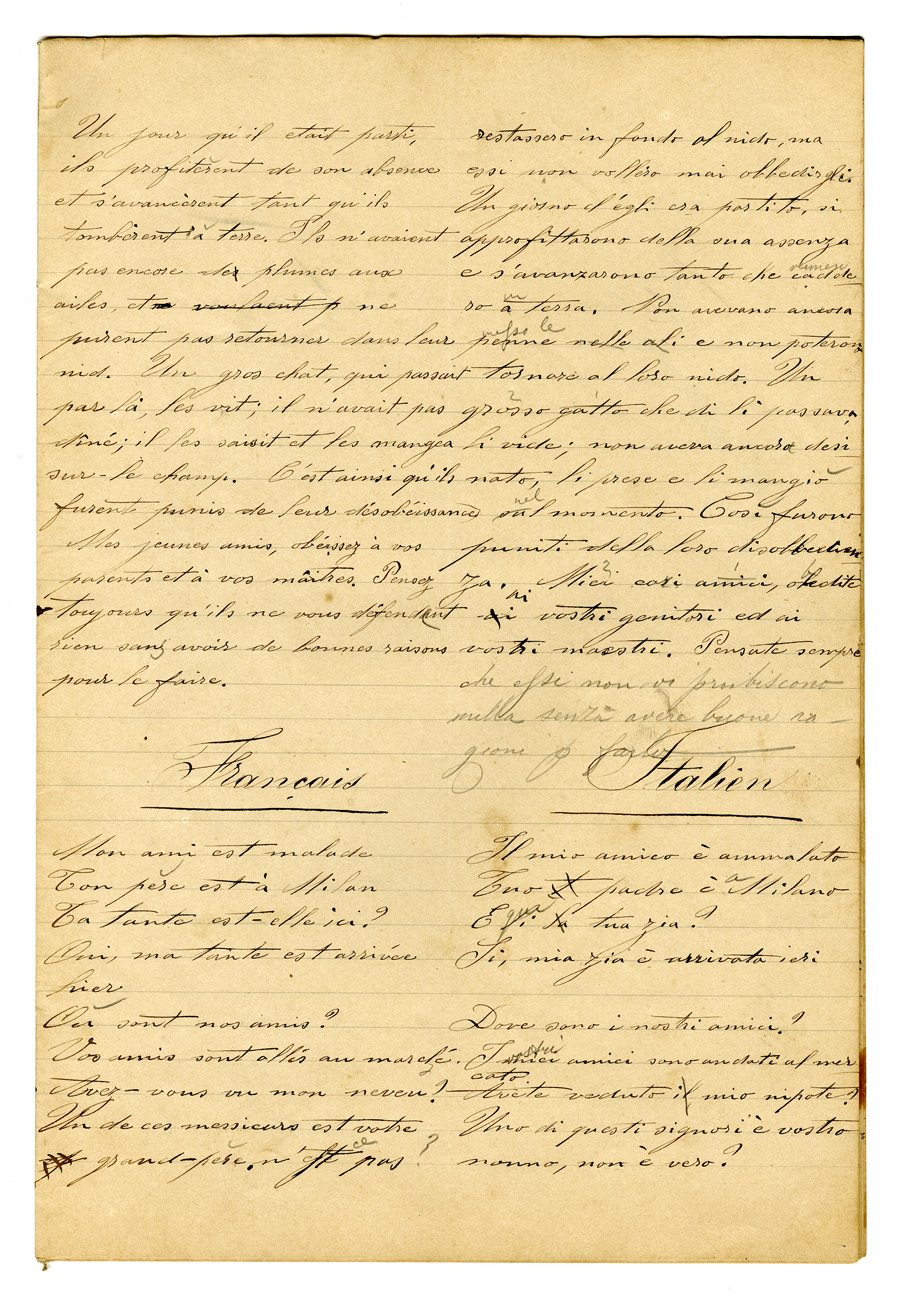 Un jour qu'il etait parti,
ils profitèrent de son absence
et s'avancèrent tant qu'ils
tombèrent à terre. Ils n'avaient
pas encore des plumes aux
ailes, et voulaent p ne
purent pas retourner dans leur
nid. Un gros chat, qui passait
par là, les vit; il n'avait pas
dîné; il les saisit et les mangea
sur-le champ. C'est ainsi qu'ils
furent punis de leur désobéissance
Mes jeunes amis, obéissez à vos
parents et à vos maîtres. Pensez
toujours qu'ils ne vous défendent
rien sans avoir de bonnes raisons
pour le faire.
restassero in fondo al nido, ma
essi non vollero mai obbedirgli.
Un giorno d'egli era partito, si
approfittarono della sua assenza
e s'avanzarono tanto che cadde
ro a terra. Non avevano ancora
messo le
penne nelle ali e non poteron
tornare al loro nido. Un
grosso gatto che di lì passava,
li vide; non aveva ancora desi
nato, li prese e li mangiò
nel
sul momento. Così furono
puniti della loro disobbedien
za. Miei cari amici, obedite
ai
ai vostri genitori ed ai
vostri maestri. Pensate sempre
che essi non vi proibiscono
nulla senza avere buone ra-
gioni p farlo
Français
Mon ami est malade
Ton père est à Milan
Ta tante est-elle ici?
Oui, ma tante est arrivée
hier
Où sont nos amis?
Vos amis sont allés au marché.
Avez-vous vu mon neveu?
Un de ces messieurs est votre
grand-père, n'est ce pas?
Italien
Il mio amico è ammalato
Tuo padre è a Milano
qua
E la tua zia?
Si, mia zia è arrivata ieri
Dove sono i nostri amici?
vostri
I miei amici sono andati al mer
cato.
Avete veduto il mio nipote?
Uno di questi signori è vostro
nonno, non è vero?